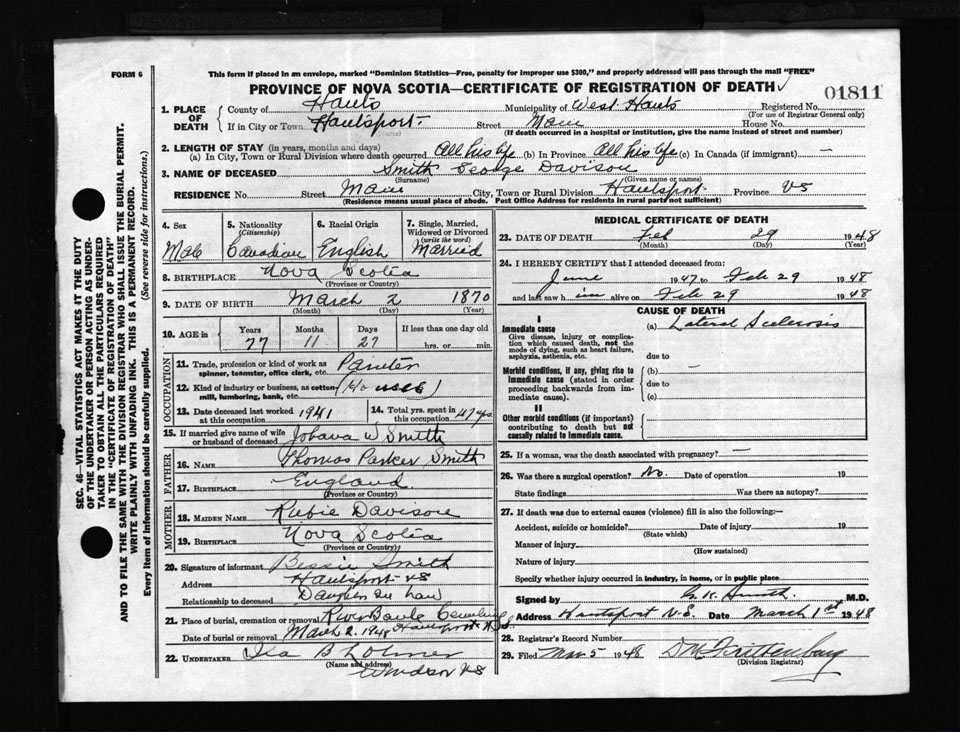 FORM 6
This form if placed in an envelope, marked "Dominion Statistics—Free, penalty for improper use $300," and properly addressed will pass through the mail "FREE"
PROVINCE OF NOVA SCOTIA—CERTIFICATE OF REGISTRATION OF DEATH
01811
1. PLACE OF DEATH
County of Hants Municipality of West Hants Registered No.
(For use of Registrar General only)
If in City or Town Hantsport Street Main House No.
(Name)
(If death occurred in a hospital or institution, give the name instead of street and number)
2. LENGTH OF STAY (in years, months and days)
(a) In City, Town or Rural Division where death occurred All his life (b) In Province All his life (c) In Canada (if immigrant) —
3. NAME OF DECEASED Smith George Davison
(Surname) (Given name or names)
RESIDENCE No. Street Main City, Town or Rural Division Hantsport Province NS
(Residence means usual place of abode. Post Office Address for residents in rural parts not sufficient)
4. Sex 5. Nationality (Citizenship) 6. Racial Origin 7. Single, Married, Widowed or Divorced (write the word)
Male Canadian English Married
8. BIRTHPLACE Nova Scotia
(Province or Country)
9. DATE OF BIRTH March 2 1870
(Month) (Day) (Year)
10. AGE in Years Months Days If less than one day old
77 11 27 hrs. or min.
OCCUPATION
11. Trade, profession or kind of work as spinner, teamster, office clerk, etc. Painter
12. Kind of industry or business, as cotton-mill, lumbering, bank, etc.
13. Date deceased last worked at this occupation 1941
14. Total yrs. spent in this occupation 47 yrs.
15. If married give name of wife or husband of deceased W Smith
FATHER
16. NAME Thomas Parker Smith
17. BIRTHPLACE England
(Province or Country)
MOTHER
18. MAIDEN NAME Davison
19. BIRTHPLACE Nova Scotia
(Province or Country)
20. Signature of informant Bessie Smith
Address Hantsport NS
Relationship to deceased Daughter in Law
21. Place of burial, cremation or removal Hantsport N.S.
Date of burial or removal March 2, 1948
22. UNDERTAKER Ira B
(Name and address)
Windsor NS
MEDICAL CERTIFICATE OF DEATH
23. DATE OF DEATH Feb 29 1948
(Month) (Day) (Year)
24. I HEREBY CERTIFY that I attended deceased from:
June 1947 to Feb 29 1948
and last saw him alive on Feb 29 1948
CAUSE OF DEATH
I
Immediate cause (a) Lateral Sclerosis
Give disease, injury or complication which caused death, not the mode of dying, such as heart failure, asphyxia, asthenia, etc.
due to
Morbid conditions, if any, giving rise to immediate cause (stated in order proceeding backwards from immediate cause).
(b) —
due to
(c)
II
Other morbid conditions (if important) contributing to death but not causally related to immediate cause.
25. If a woman, was the death associated with pregnancy? —
26. Was there a surgical operation? No. Date of operation 19
State findings Was there an autopsy?
27. If death was due to external causes (violence) fill in also the following:—
Accident, suicide or homicide? Date of injury 19
(State which)
Manner of injury
(How sustained)
Nature of injury
Specify whether injury occurred in industry, in home, or in public place
Signed by Smith M.D.
Address Hantsport N.S. Date March 1st 1948
28. Registrar's Record Number
29. Filed Mar 5 1948
(Division Registrar)
SEC. 46—VITAL STATISTICS ACT MAKES IT THE DUTY
OF THE UNDERTAKER OR PERSON ACTING AS UNDER-
TAKER TO OBTAIN ALL THE PARTICULARS REQUIRED
IN THE "CERTIFICATE OF REGISTRATION OF DEATH"
AND TO FILE THE SAME WITH THE DIVISION REGISTRAR WHO SHALL ISSUE THE BURIAL PERMIT.
WRITE PLAINLY WITH UNFADING INK. THIS IS A PERMANENT RECORD.
Every item of information should be carefully supplied. (See reverse side for instructions.)